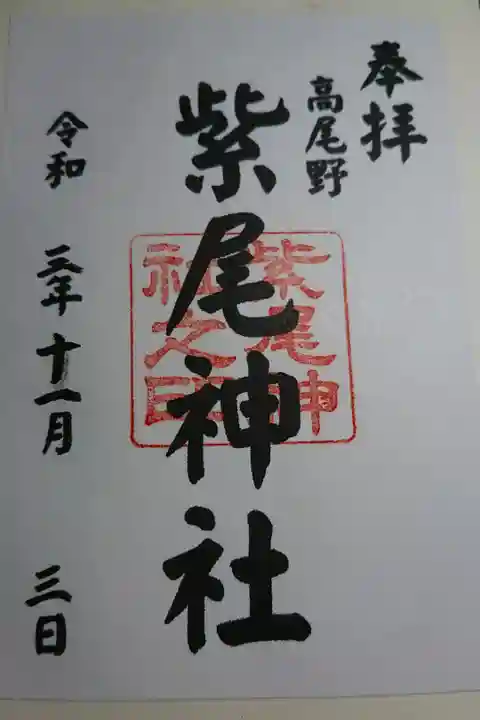 奉拝
高尾野
紫尾神社
紫尾神
社之印
令和 三年十一月 三日